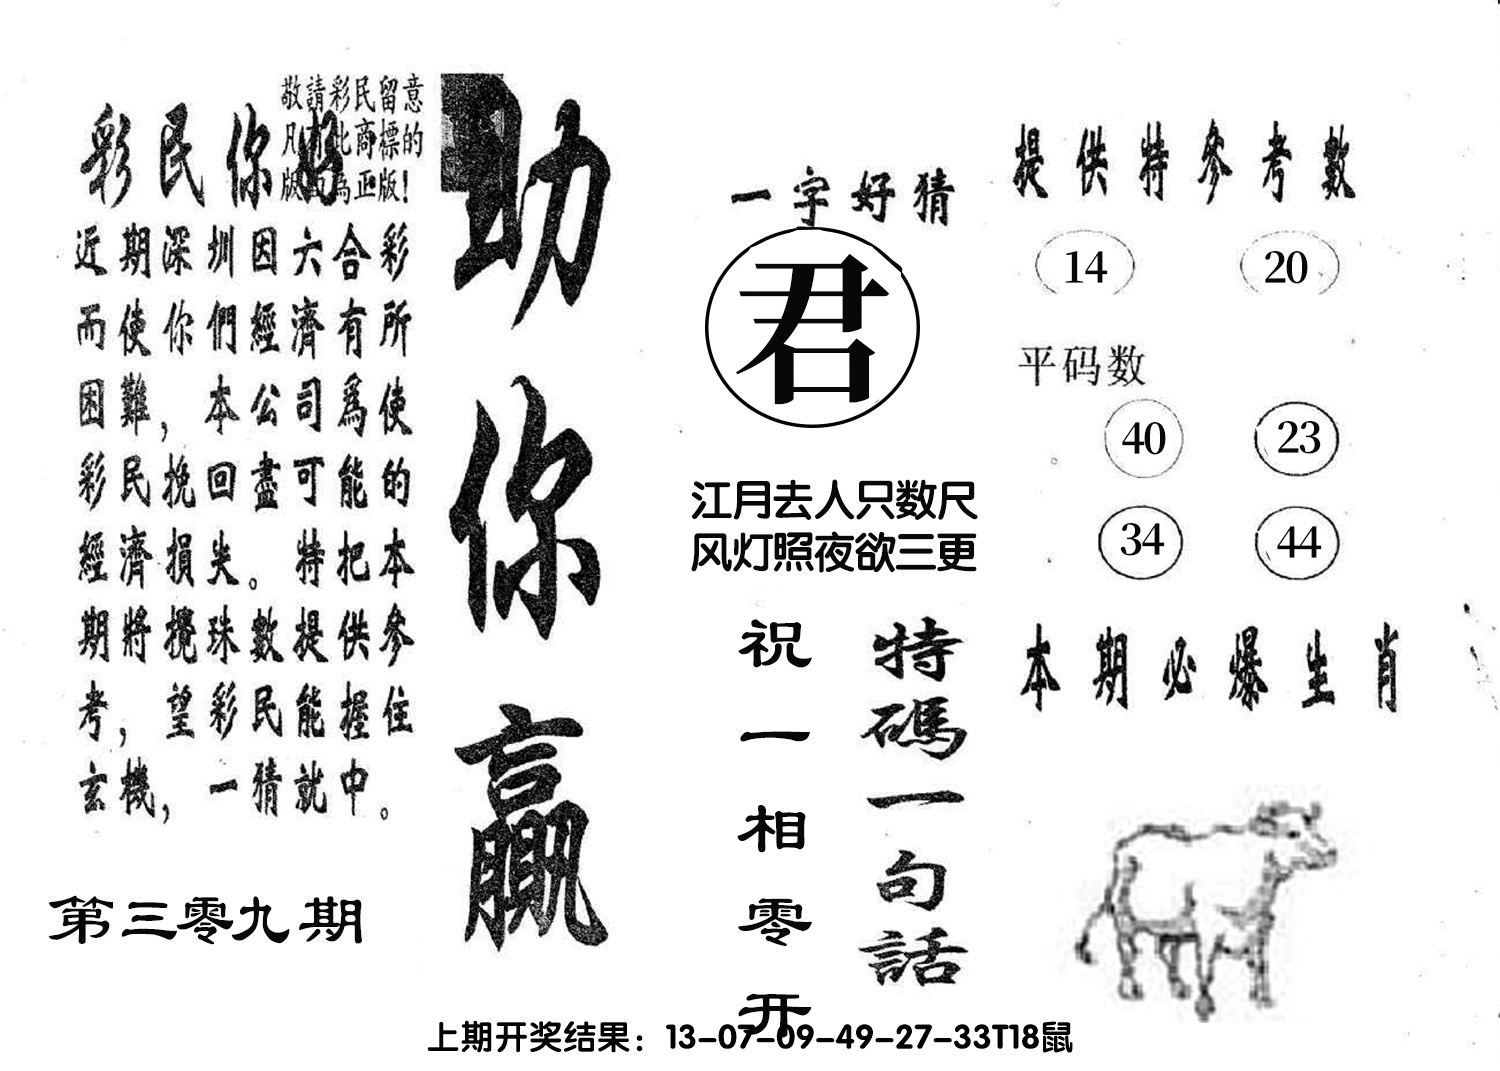 敬請彩民留意
凡有此商標的
版面為正版!
彩民你好
近期深圳因六合彩
而使你們經濟有所
困難，本公司爲使
彩民挽回盡可能的
經濟損失。特把本
期將攪珠數提供參
考，望彩民能握住
玄機，一猜就中。
第三零九期
助你贏
一字好猜
君
江月去人只数尺
风灯照夜欲三更
特碼一句話
祝一相零开
提供特參考數
14 20
平码数
40 23
34 44
本期必爆生肖
上期开奖结果：13-07-09-49-27-33T18鼠